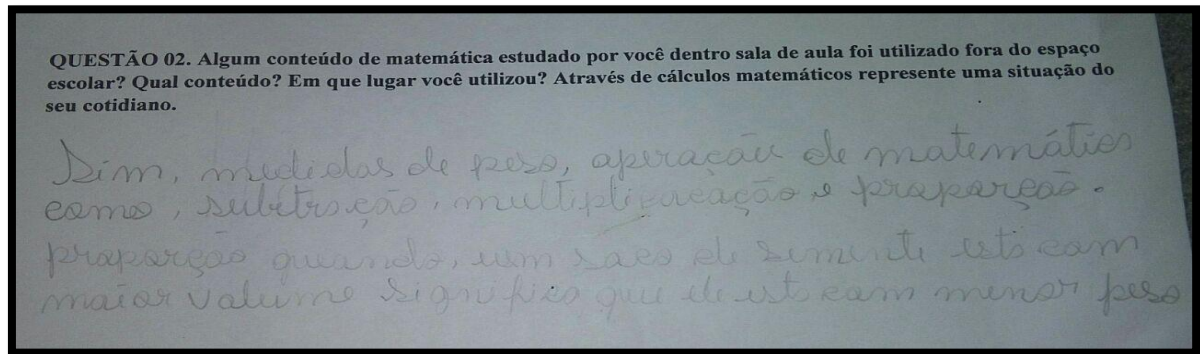 QUESTÃO 02. Algum conteúdo de matemática estudado por você dentro sala de aula foi utilizado fora do espaço
escolar? Qual conteúdo? Em que lugar você utilizou? Através de cálculos matemáticos represente uma situação do
seu cotidiano.
Sim, medidas de peso, operação de matemática
como, subtração, multiplicação e proporção.
proporção quando, um saco de semente esta com
maior volume significa que ele est com menor peso